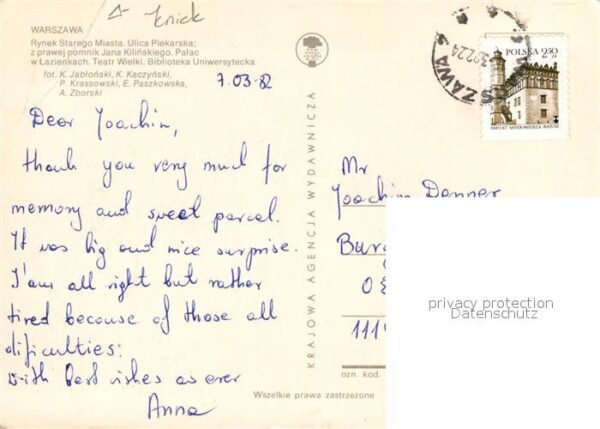 Knick
WARSZAWA
Rynek Starego Miasta. Ulica Piekarska;
z prawej pomnik Jana Kilińskiego. Pałac
w Łazienkach. Teatr Wielki. Biblioteka Uniwersytecka
fot. K. Jabłoński, K. Kaczyński,
P. Krassowski, E. Paszkowska,
A. Zborski
7.03.82
Dear Joachim,
thank you very much for
memory and sweet parcel.
It was big and nice surprise.
I'am all right but rather
tired because of those all
dificulties:
with best wishes as ever
Anna
KRAJOWA AGENCJA WYDAWNICZA
POLSKA 2,50
ZŁ
RATUSZ
Mr
Joachim Danner
Burg
08
111
ozn. kod.
Wszelkie prawa zastrzeżone
privacy protection
Datenschutz